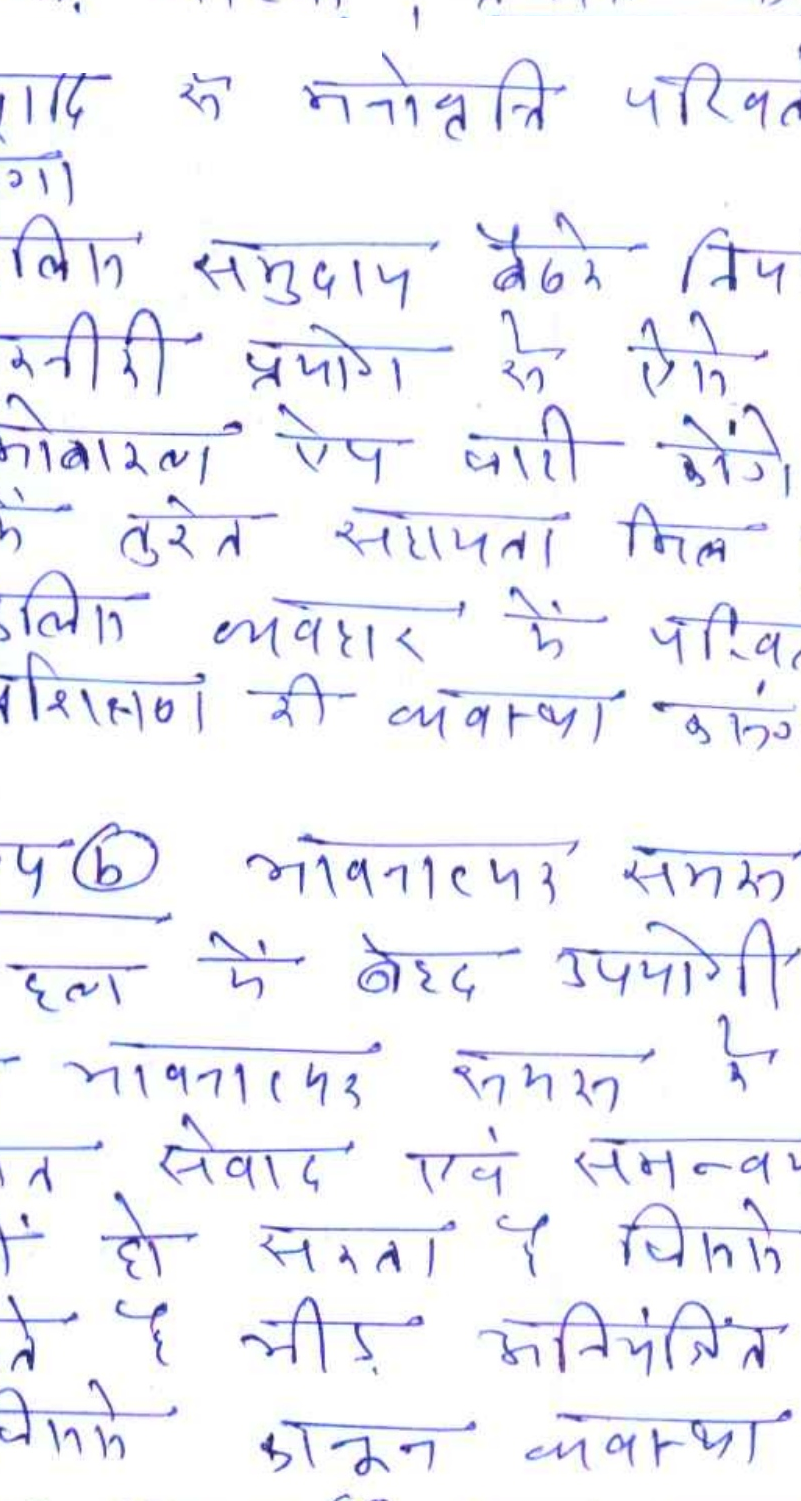 आदि से मनोवृत्ति परिवर्त
गा
लिस समुदाय बैठके निय
कनीकी प्रयोग से ऐसे
मोबाइल ऐप जारी करेंगे
में तुरंत सहायता मिल
पुलिस व्यवहार में परिवर्त
प्रशिक्षण की व्यवस्था
प (b) भावनात्मक समझ
हल में बेहद उपयोगी
भावनात्मक समझ के
त संवाद एवं समन्वय
हो सकता है जिससे
ते है भीड़ अनियंत्रित
जिससे कानून व्यवस्था